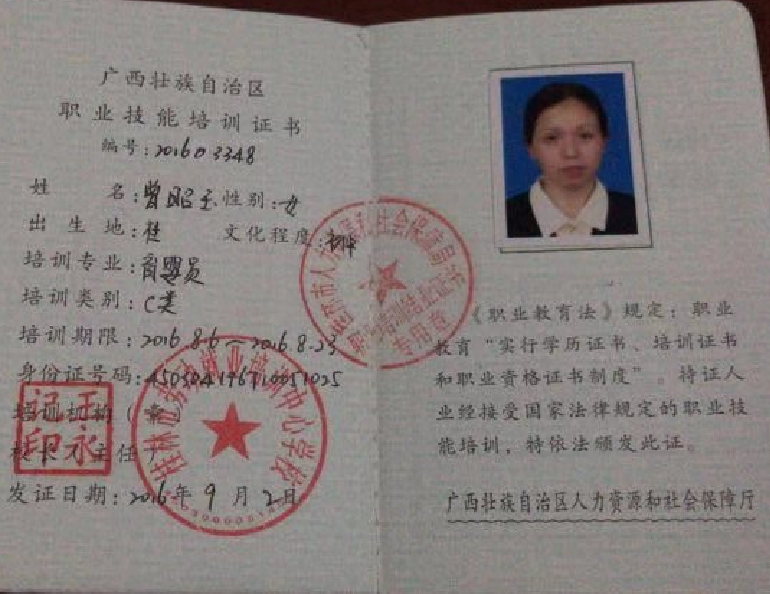 广西壮族自治区
职业技能培训证书
编号:201603348
姓 名:曾昭玉 性别:女
出生地:桂 文化程度:初中
培训专业:育婴员
培训类别:C类
培训期限:2016.8.6—2016.8.23
身份证号码:
培训机构(章)
校长(主任)
王永记印
发证日期:2016年9月2日
桂林市 就业培训中心学校
桂林市人力资源和社会保障局
《职业教育法》规定:职业
教育“实行学历证书、培训证书
和职业资格证书制度”。持证人
业经接受国家法律规定的职业技
能培训,特依法颁发此证。
广西壮族自治区人力资源和社会保障厅